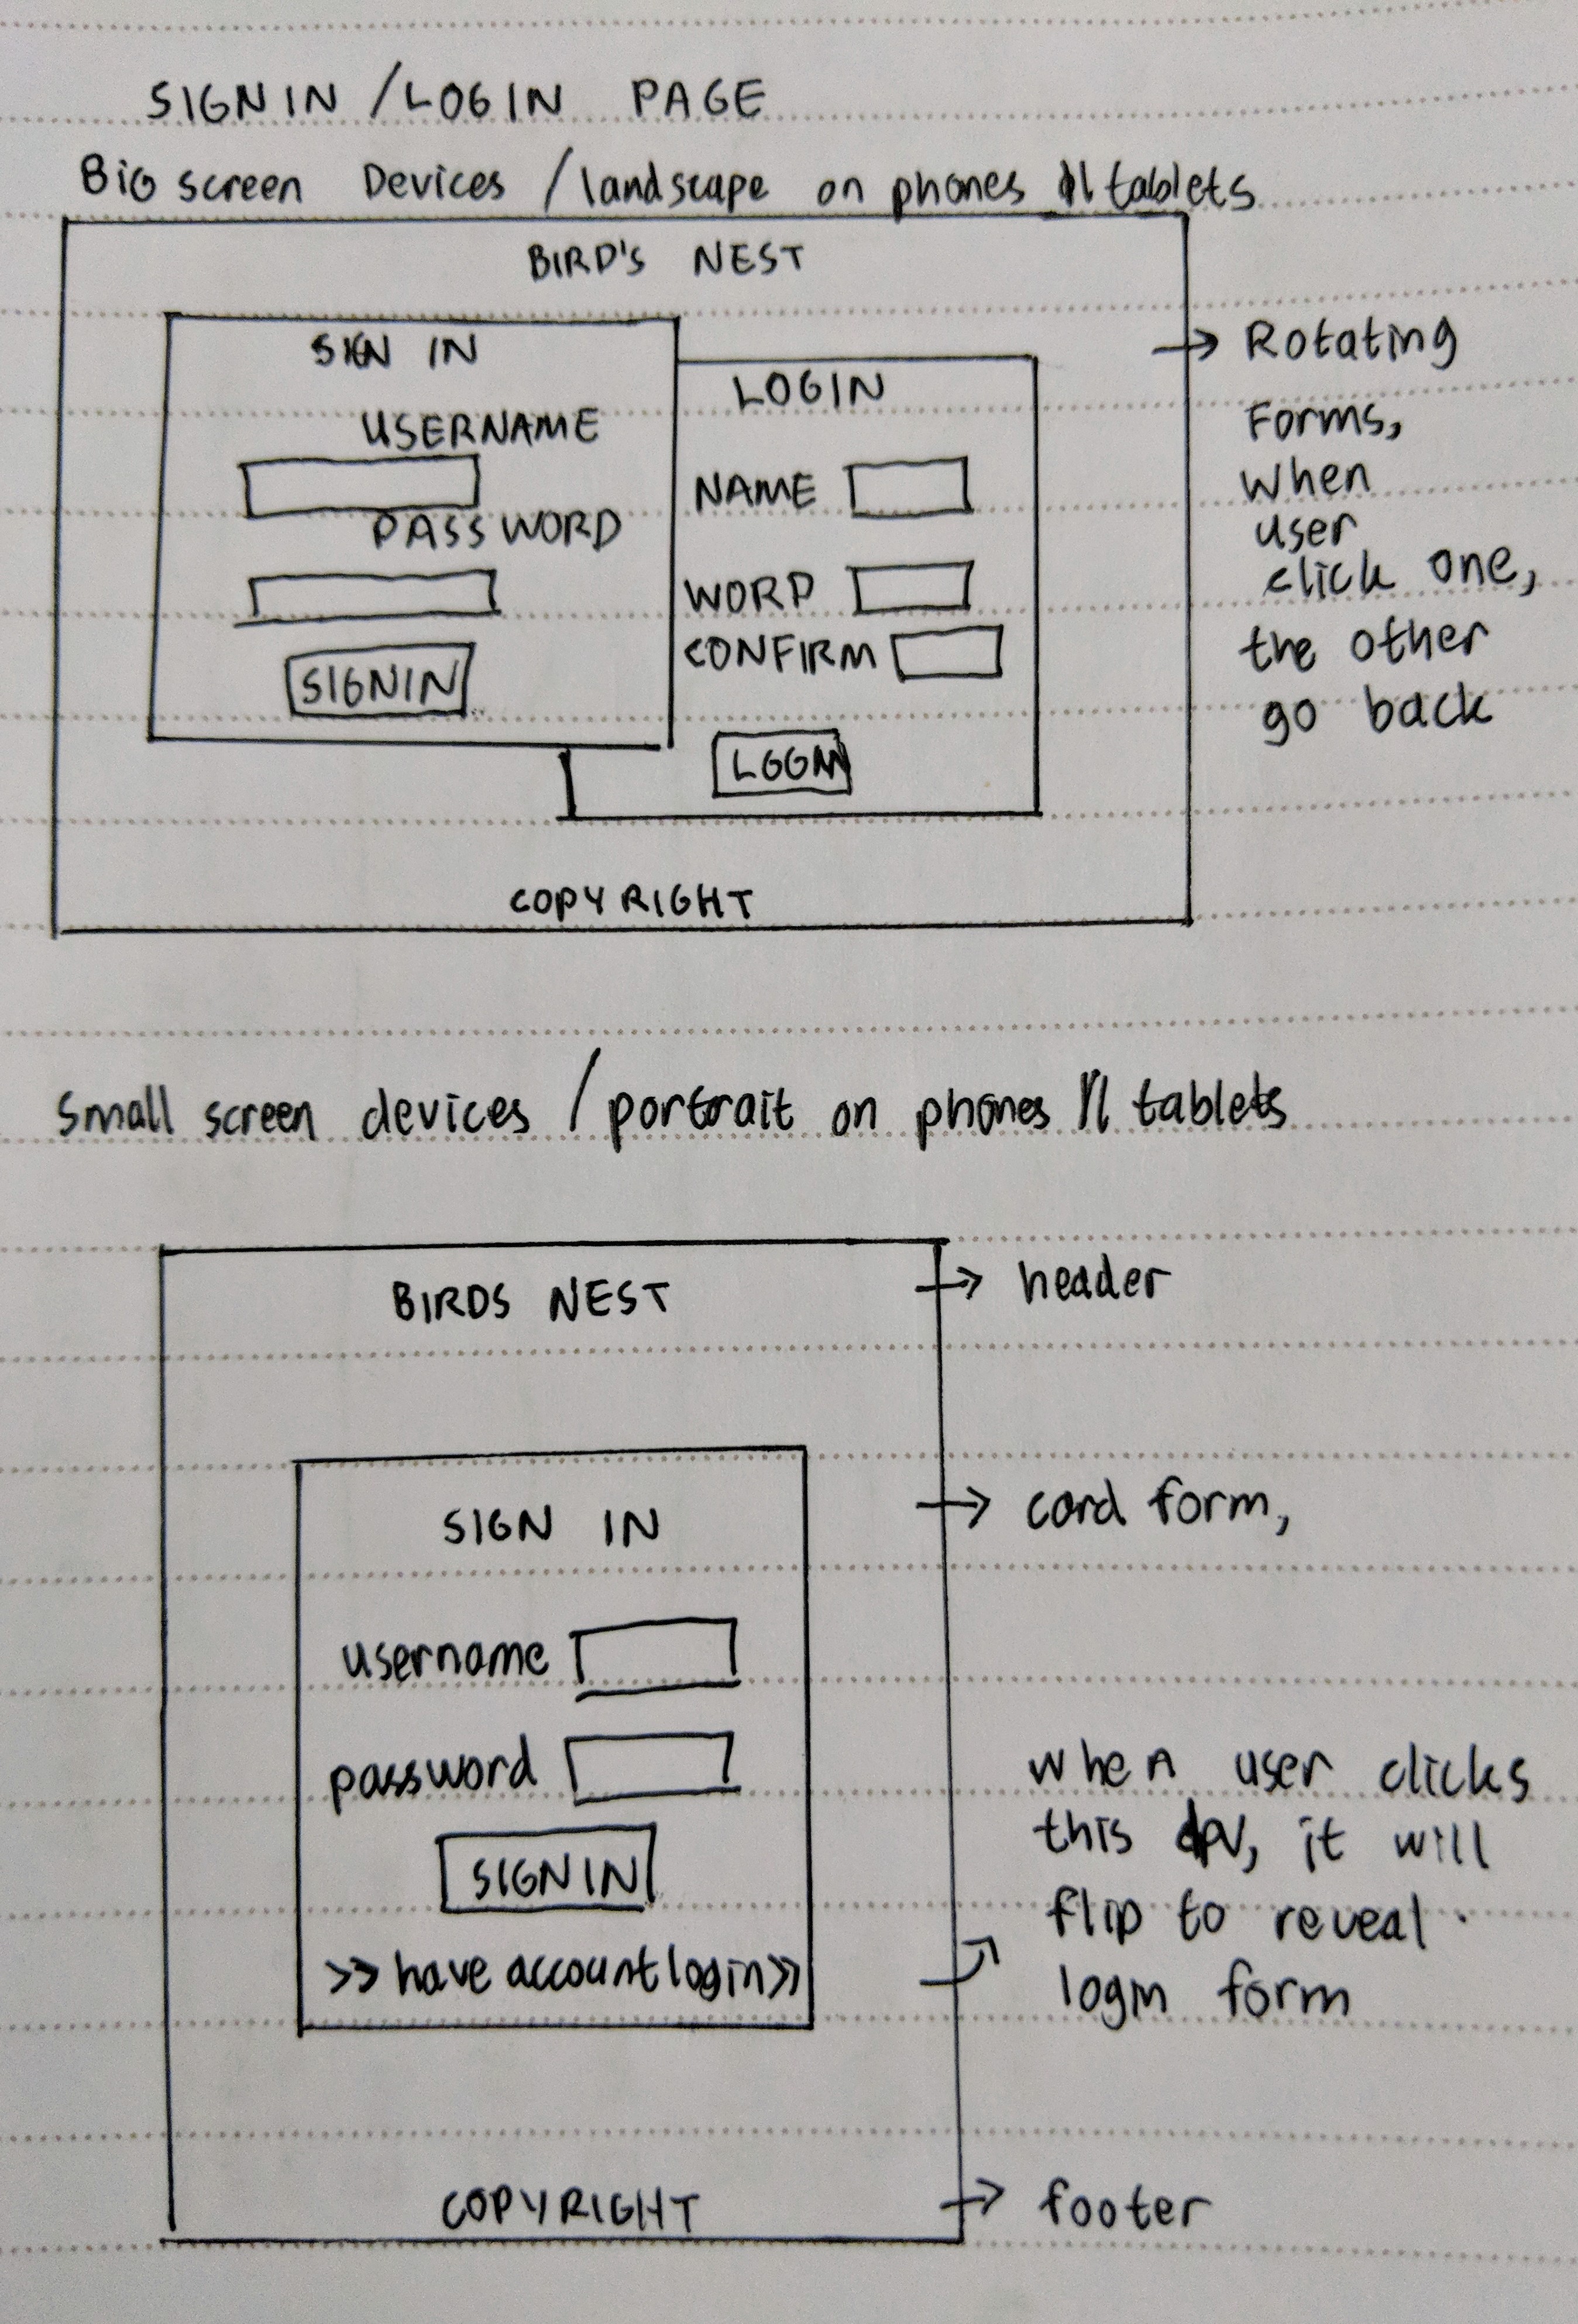 SIGN IN / LOGIN PAGE
Big screen Devices / landscape on phones & tablets
BIRD'S NEST
SIGN IN
USERNAME
PASSWORD
SIGNIN
LOGIN
NAME
WORD
CONFIRM
LOGIN
COPYRIGHT
→ Rotating
Forms,
when
user
click one,
the other
go back
Small screen devices / portrait on phones & tablets
BIRDS NEST
→ header
SIGN IN
→ card form,
username
password
SIGNIN
>> have account login >>
when user clicks
this div, it will
flip to reveal
login form
COPYRIGHT
→ footer